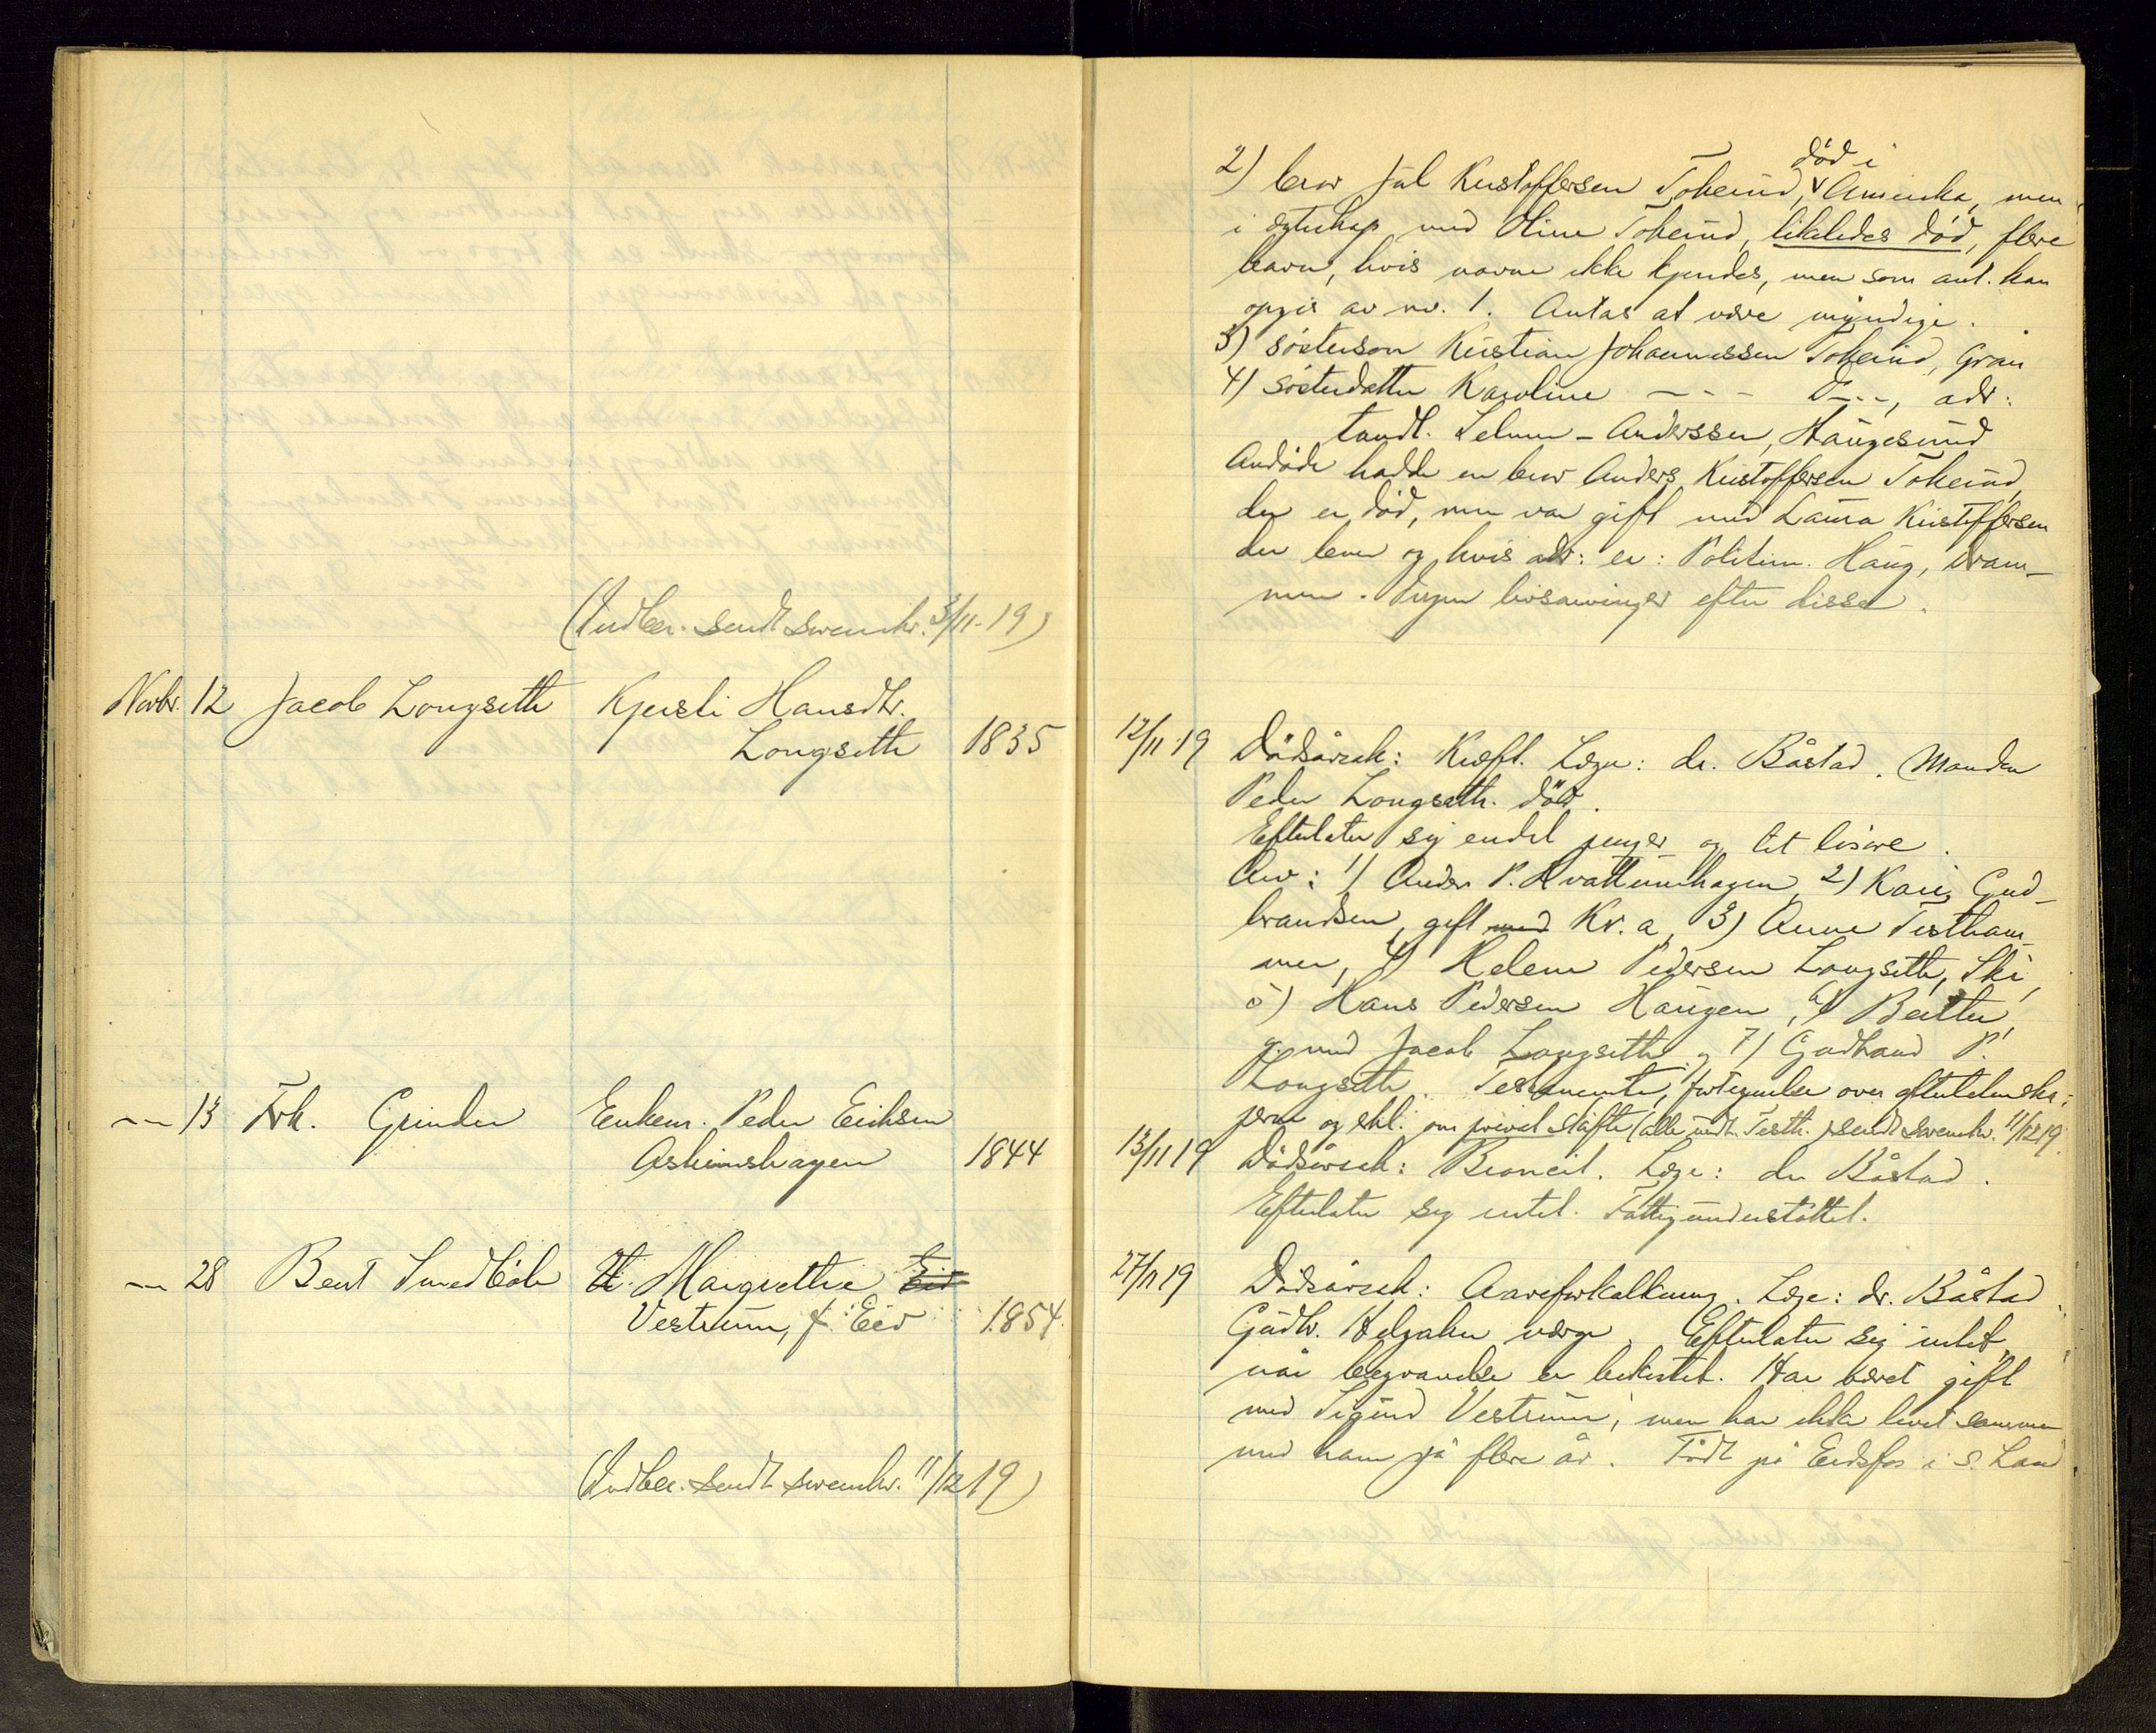 2) bror Jul Kristoffersen Tokerud, død i Amerika, men
i egteskap med Oline Tokerud, likeledes død, flere
barn, hvis navne ikke kjendes, men som ant. kan
opgis av nr. 1. Antas at være myndige.
3) søsterson Kristian Johannessen Tokerud, Gran
4) søsterdatter Karoline --- T---, adr:
tandl. Selmer-Anderssen, Haugesund
Avdøde hadde en bror Anders Kristoffersen Tokerud,
der er død, men var gift med Laura Kristoffersen
der lever og hvis adr: er: Politim. Haug, Dram-
men. Ingen livsarvinger efter disse.
(Indber. sendt sorenskr. 3/11-19)
Novbr. 12 Jacob Longseth Kjersti Hansdtr.
Longseth 1835
12/11 19 Dødsårsak: Kræft. Læge: dr. Båstad. Manden
Peder Longseth død.
Efterlater sig endel penger og litt løsøre.
Arv: 1) Anders P. Hvattumhagen, 2) Kari Gud-
brandsen, gift med Kr. a, 3) Anne Testham-
mer, 4) Helene Pedersen Longseth, Ski,
5) Hans Pedersen Haugen, 6) Berthe,
g. med Jacob Longseth og 7) Gudbrand P.
Longseth. Testamente, fortegnelse over efterlatenska-
perne og erkl. om privat skifte (alle undt. Testh.) sendt sorenskr. 11/12 19.
— 13 Frk. Grinder Enkem. Peder Eriksen
Askimshagen 1844
13/11 19 Dødsårsak: Broncit. Læge: dr Båstad.
Efterlater sig intet. Fattigunderstøttet.
— 28 Bent Smedbøle Margrethe Eid
Vestrum, f. Eid 1854
27/11 19 Dødsårsak: Aareforkalkning. Læge: dr. Båstad.
Gudbr. Helgaker værge. Efterlater sig intet,
når begravelse er bekostet. Har været gift
med Sigurd Vestrum, men har ikke levet sammen
med ham på flere år. Født på Eidsfos i S. Land
(Indber. sendt sorenskr. 11/12 19)